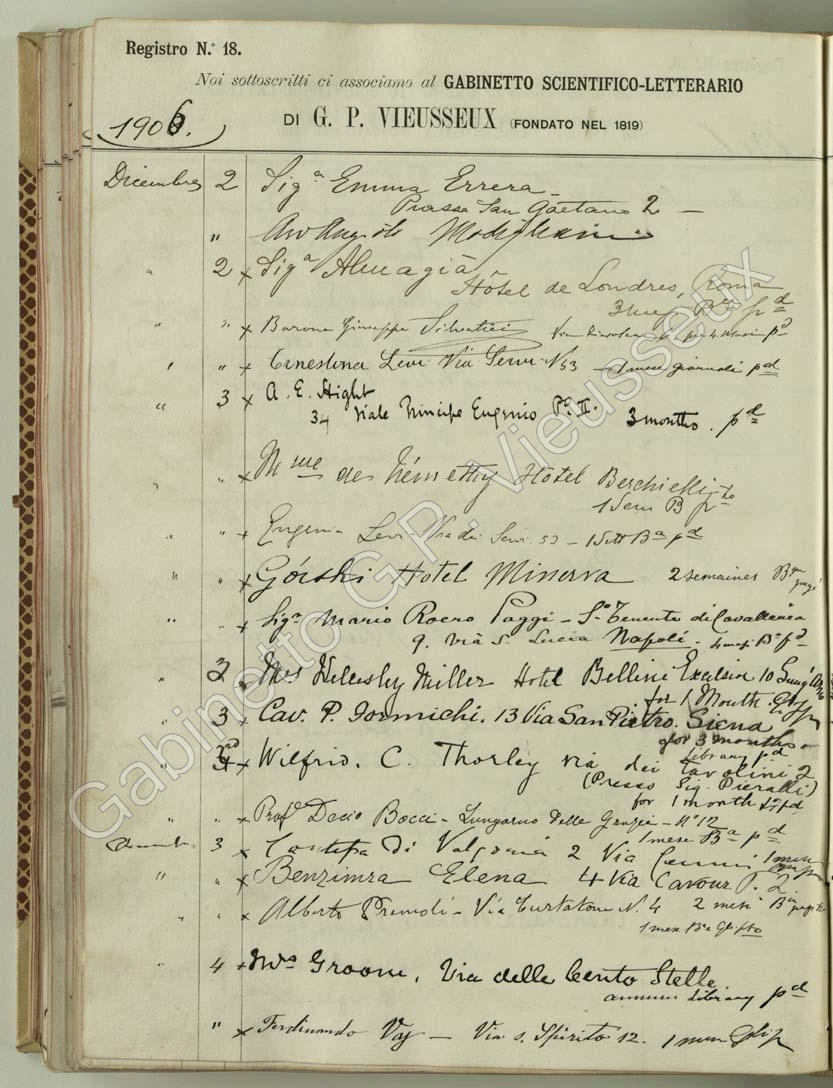 Registro N.° 18.
Noi sottoscritti ci associamo al GABINETTO SCIENTIFICO-LETTERARIO
DI G. P. VIEUSSEUX (FONDATO NEL 1819)
1906.
Dicembre 2 Sigª Emma Errera
Piazza San Gaetano 2 —
" Modigliani
" 2 x Sigª Almagià
Hôtel de Londres, Roma
3 mesi Bª pd
" " x Barone Giuseppe Via
" " x Ernestina Levi Via Servi N 53 — 1 mese giornali pd
" 3 x A. E. Hight
34 Viale Principe Eugenio Pº II. 3 months. pd
" " x Mme de Némethy Hôtel Berchielli
1 Sem B pto
" " x Eugenia Levi Via dei Servi 53 — 1 Sett Bª pd
" " x Górski Hotel Minerva 2 semaines
" " x Sigr Mario Roero Poggi — S. Tenente di Cavalleria
9. Via Sª Lucia Napoli.
" 3 Mrs Wellesley Miller Hotel Bellini Excelsior 10 Lung'Arno
for 1 Month
" 3 x Cav. P. Formichi. 13 Via San Pietro. Siena
for 3 months
Library pd
" 3rd x Wilfrid. C. Thorley via dei Tavolini 2
(Presso Sig. Pieralli)
for 1 month pd
" " x Profr Decio Bocci — Lungarno delle Grazie — N° 12
1 mese Bª pd
Dicembre 3 x Contessa di 2 Via 1 mese
" " x Benzimra Elena 4 Via Cavour P. 2.
" " x Alberto Via Curtatone N. 4 2 mesi Bª
1 mese
" 4 x Mrs Groom, Via delle Cento Stelle
annual library pd
" x Ferdinando Vaj — Via S. Spirito 12. 1 mese
Gabinetto G.P. Vieusseux